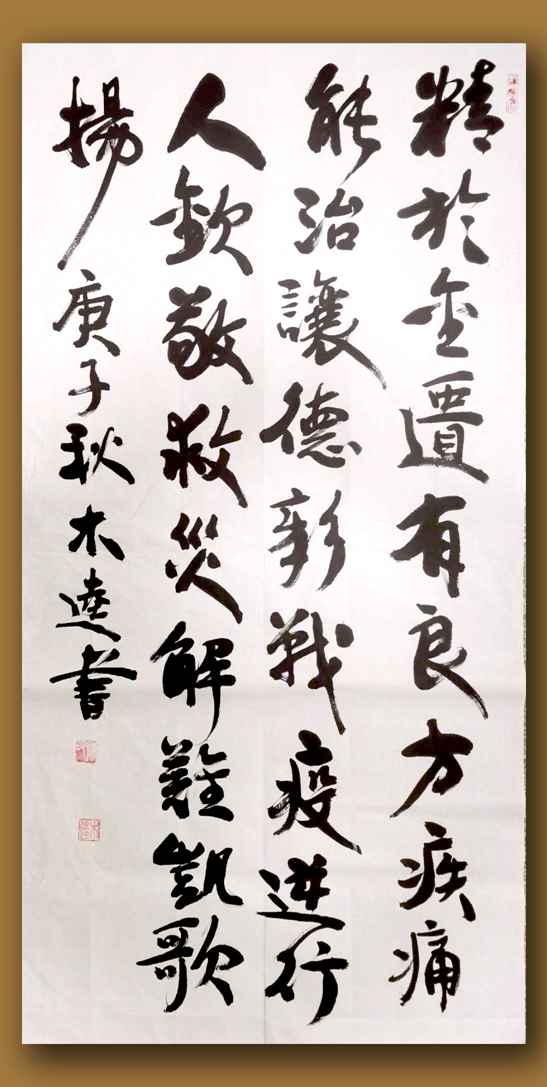 精於金匱有良方疾痛
能治讓德彰戰疫逆行
人欽敬救災解難凱歌
揚 庚子秋木逵書